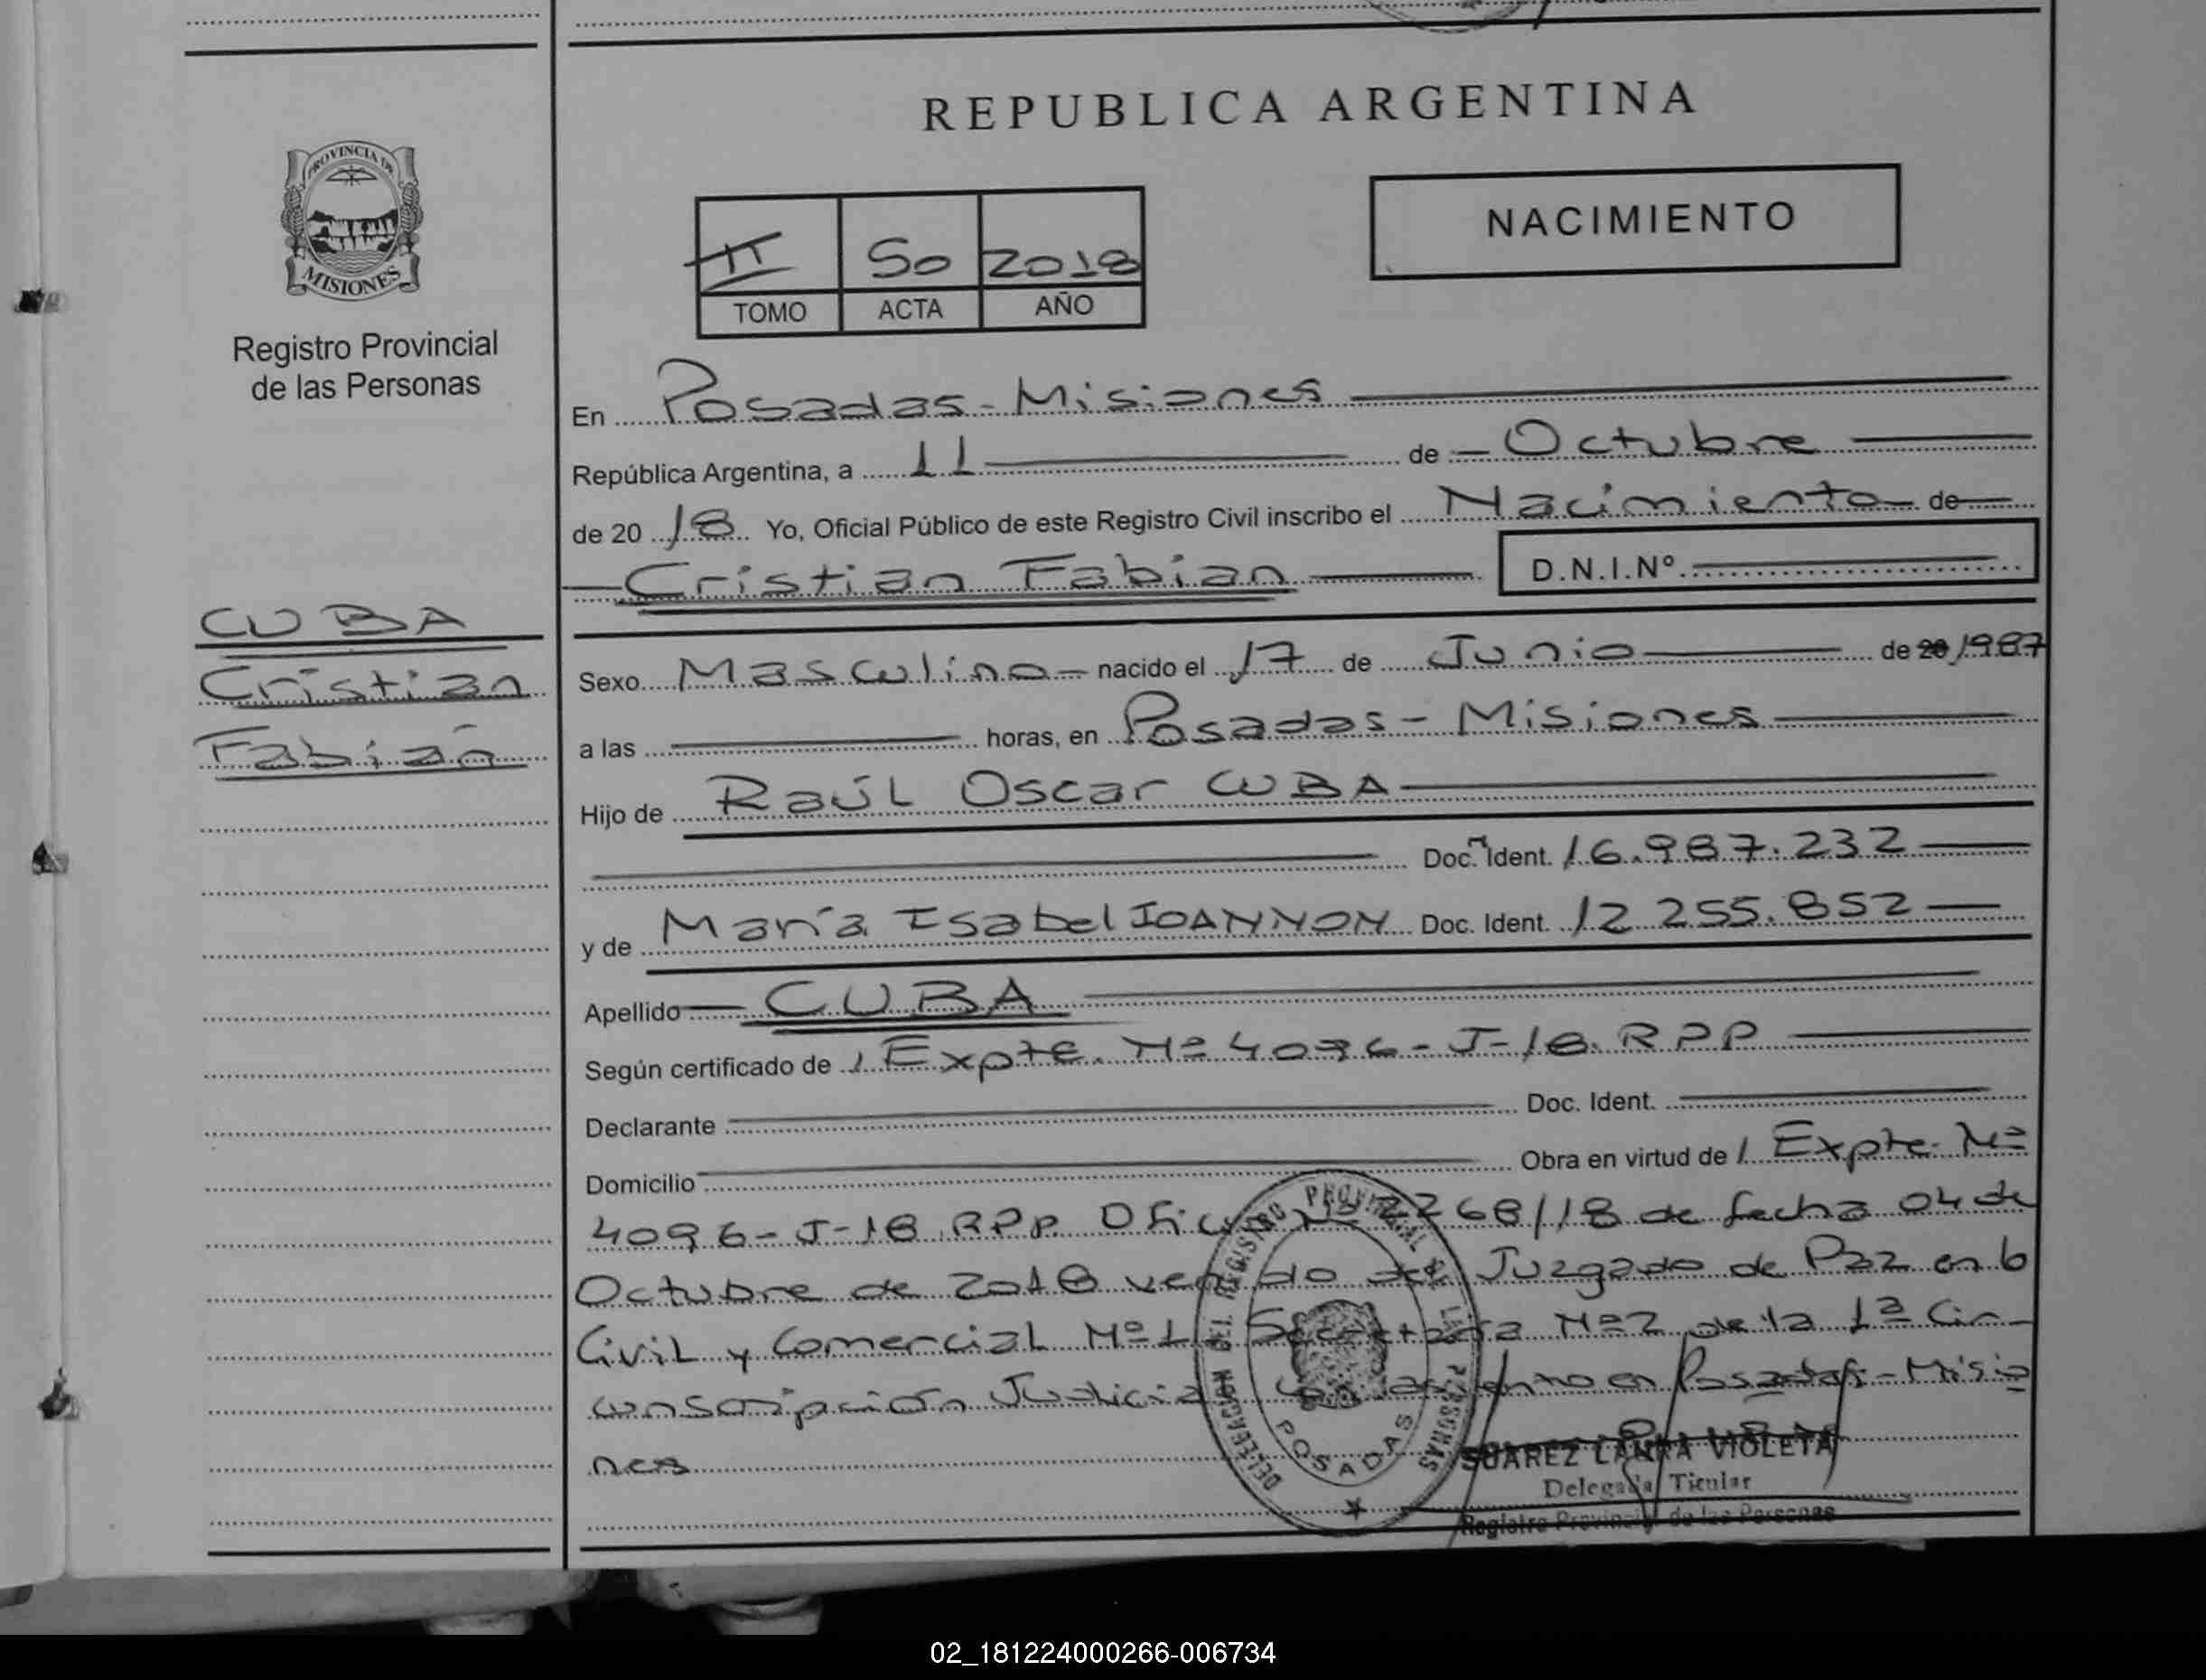 REPUBLICA ARGENTINA
PROVINCIA DE
MISIONES
Registro Provincial
de las Personas
NACIMIENTO
II 50 2018
TOMO ACTA AÑO
En Posadas - Misiones
República Argentina, a 11 de Octubre
de 20 18 Yo, Oficial Público de este Registro Civil inscribo el Nacimiento de
Cristian Fabian D.N.I.Nº
CUBA
Cristian
Fabián
Sexo Masculino nacido el 17 de Junio de 20 1987
a las horas, en Posadas - Misiones
Hijo de Raúl Oscar CUBA
Doc. Ident. 16.987.232
y de María Isabel IOANNON Doc. Ident. 12.255.852
Apellido CUBA
Según certificado de / Expte. Nº 4096-J-18. RPP
Declarante Doc. Ident.
Domicilio Obra en virtud de / Expte. Nº
4096-J-18 RPP. Oficio Nº 2268/18 de fecha 04 de
Octubre de 2018 venido del Juzgado de Paz en lo
Civil y Comercial Nº 1 Secretaría Nº 2 de la 1ª Cir-
cunscripción Judicial con asiento en Posadas - Misio
nes
DELEGACION DEL REGISTRO PROVINCIAL DE LAS PERSONAS
POSADAS
SUAREZ LAURA VIOLETA
Delegada Titular
Registro Provincial de las Personas
02_181224000266-006734